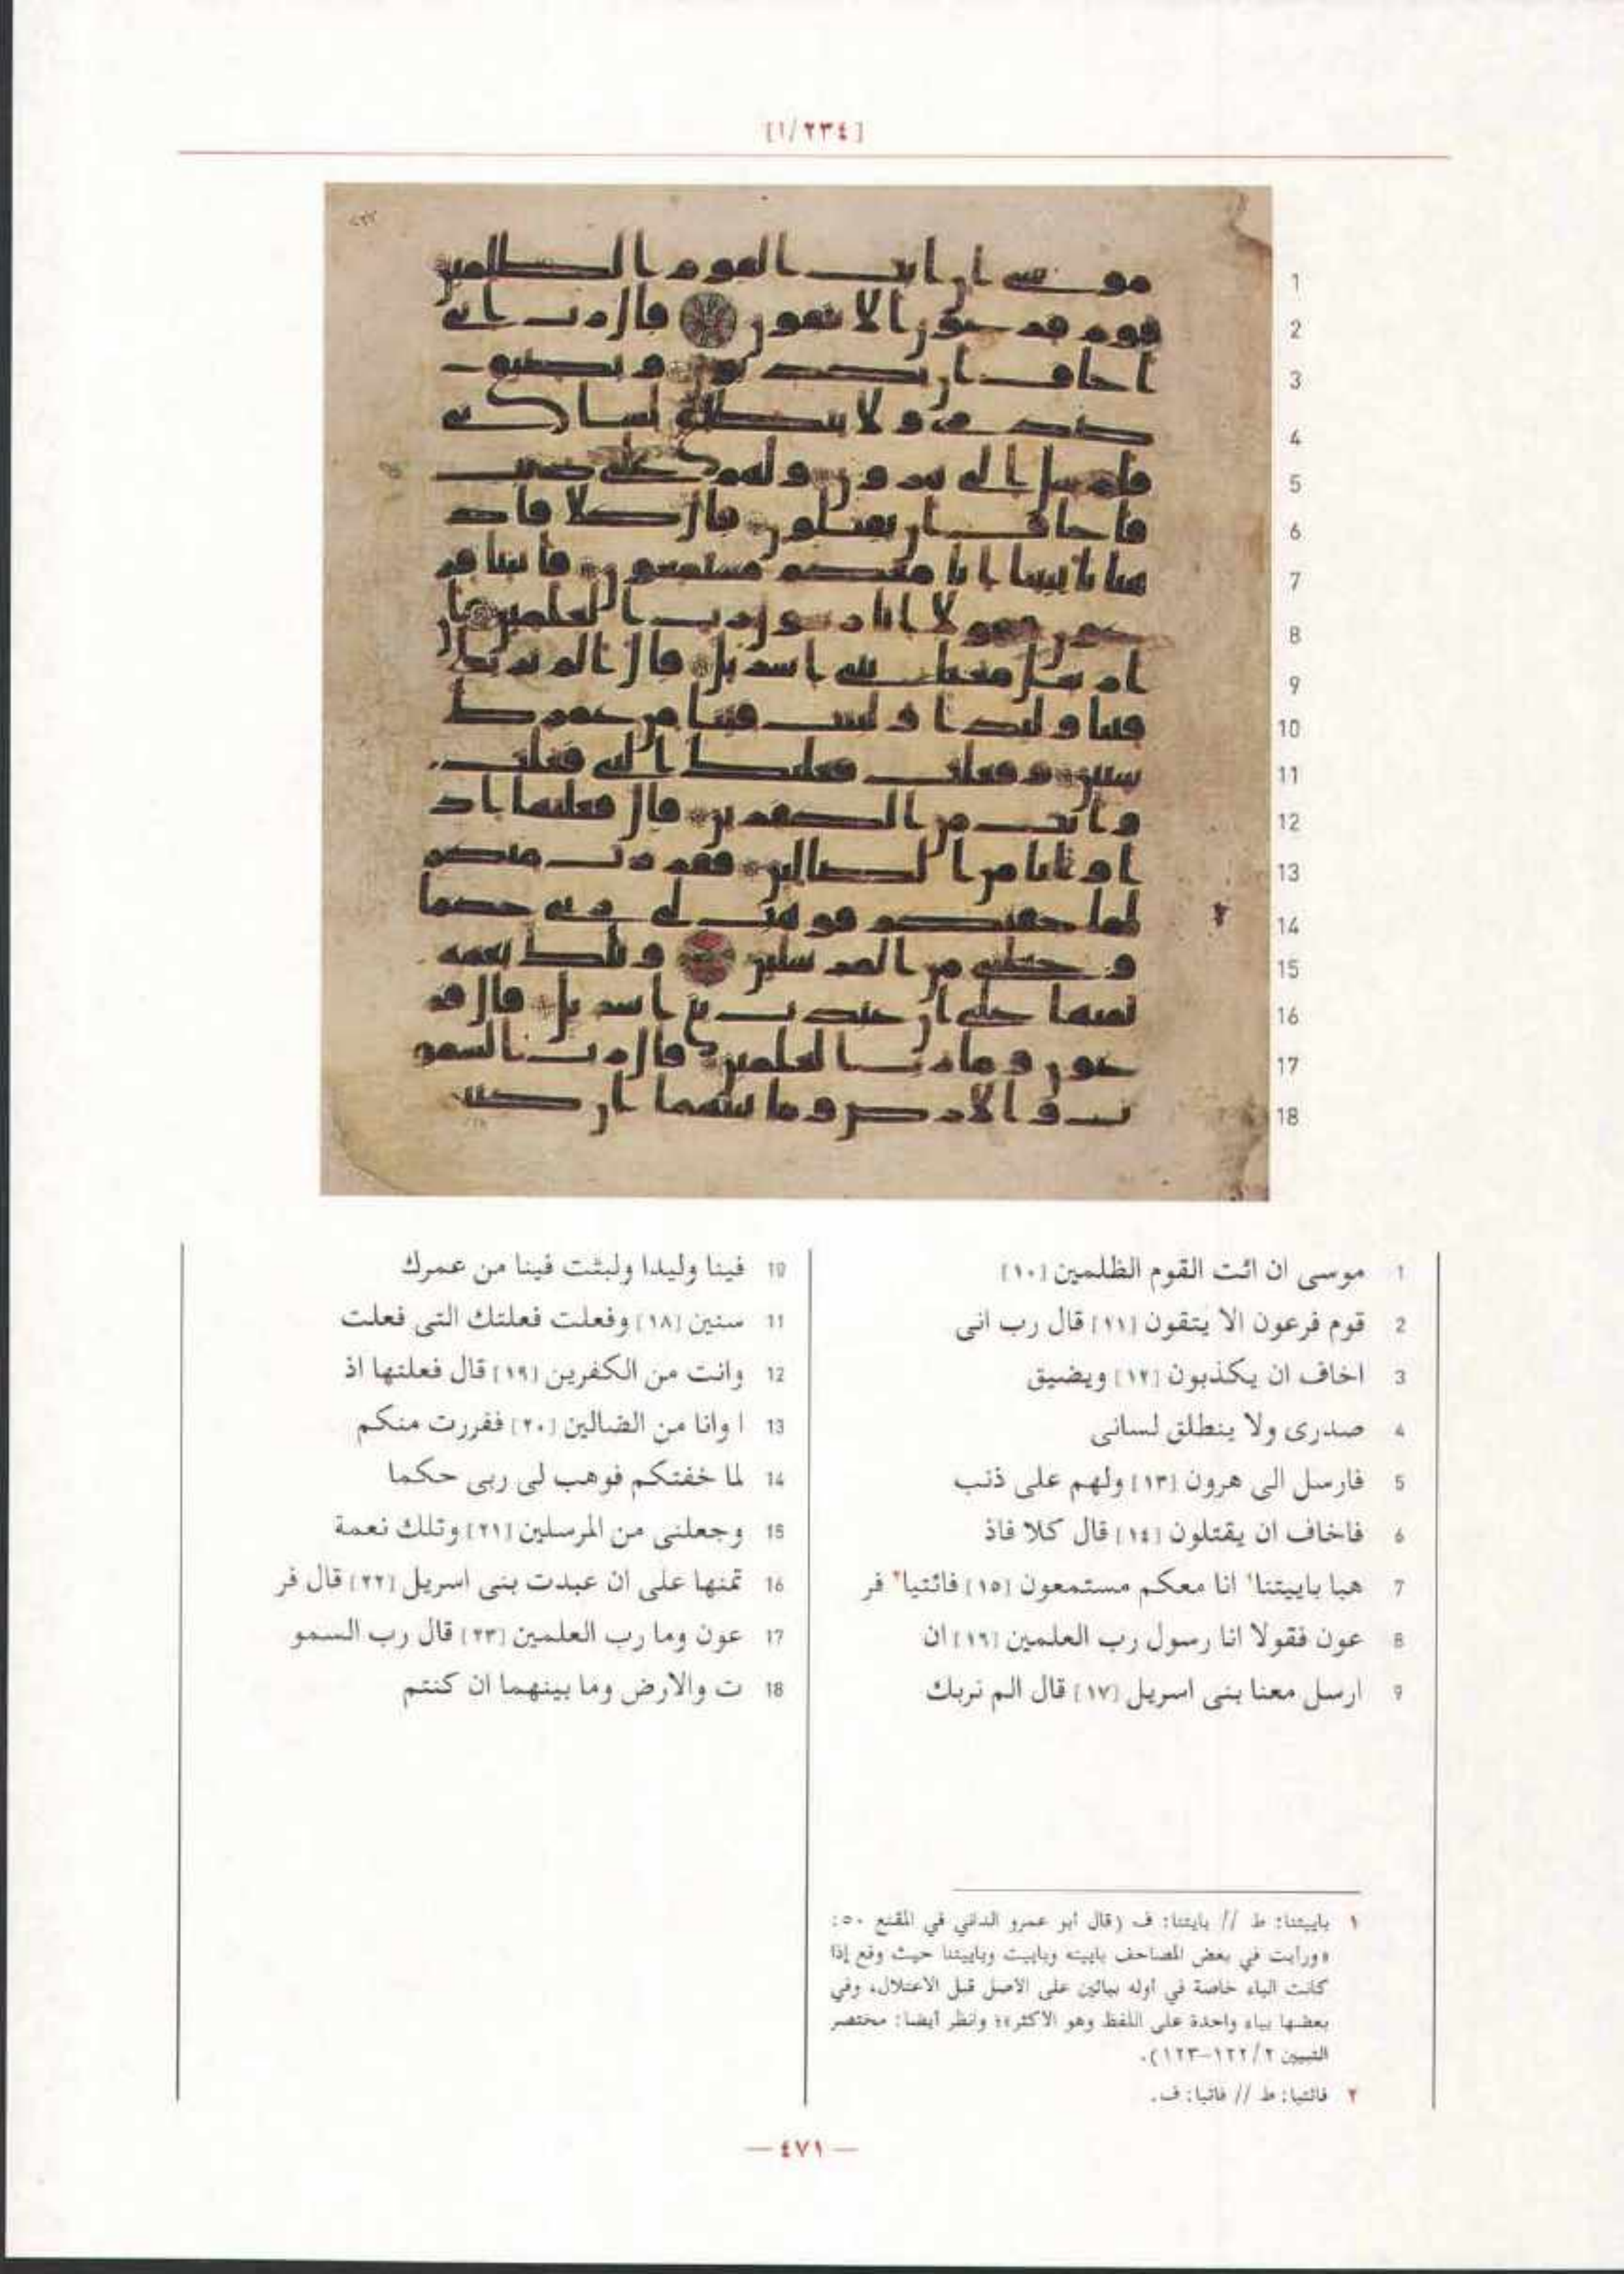 [١/٢٣٤]
1
2
3
4
5
6
7
8
9
10
11
12
13
14
15
16
17
18
1 موسى ان ائت القوم الظلمين [١٠]
2 قوم فرعون الا يتقون [١١] قال رب انى
3 اخاف ان يكذبون [١٢] ويضيق
4 صدرى ولا ينطلق لسانى
5 فارسل الى هرون [١٣] ولهم على ذنب
6 فاخاف ان يقتلون [١٤] قال كلا فاذ
7 هبا باييتنا١ انا معكم مستمعون [١٥] فائتيا٢ فر
8 عون فقولا انا رسول رب العلمين [١٦] ان
9 ارسل معنا بنى اسريل [١٧] قال الم نربك
10 فينا وليدا ولبثت فينا من عمرك
11 سنين [١٨] وفعلت فعلتك التى فعلت
12 وانت من الكفرين [١٩] قال فعلتها اذ
13 ا وانا من الضالين [٢٠] ففررت منكم
14 لما خفتكم فوهب لى ربى حكما
15 وجعلنى من المرسلين [٢١] وتلك نعمة
16 تمنها على ان عبدت بنى اسريل [٢٢] قال فر
17 عون وما رب العلمين [٢٣] قال رب السمو
18 ت والارض وما بينهما ان كنتم
١ باييتنا: ط // بايتنا: ف (قال أبو عمرو الداني في المقنع ٥٠:
«ورأيت في بعض المصاحف باييته وباييت وباييتنا حيث وقع إذا
كانت الباء خاصة في أوله بيائين على الاصل قبل الاعتلال، وفي
بعضها بياء واحدة على اللفظ وهو الاكثر»؛ وانظر أيضا: مختصر
التبيين ٢/ ١٢٢–١٢٣).
٢ فائتيا: ط // فاتيا: ف.
— ٤٧١ —